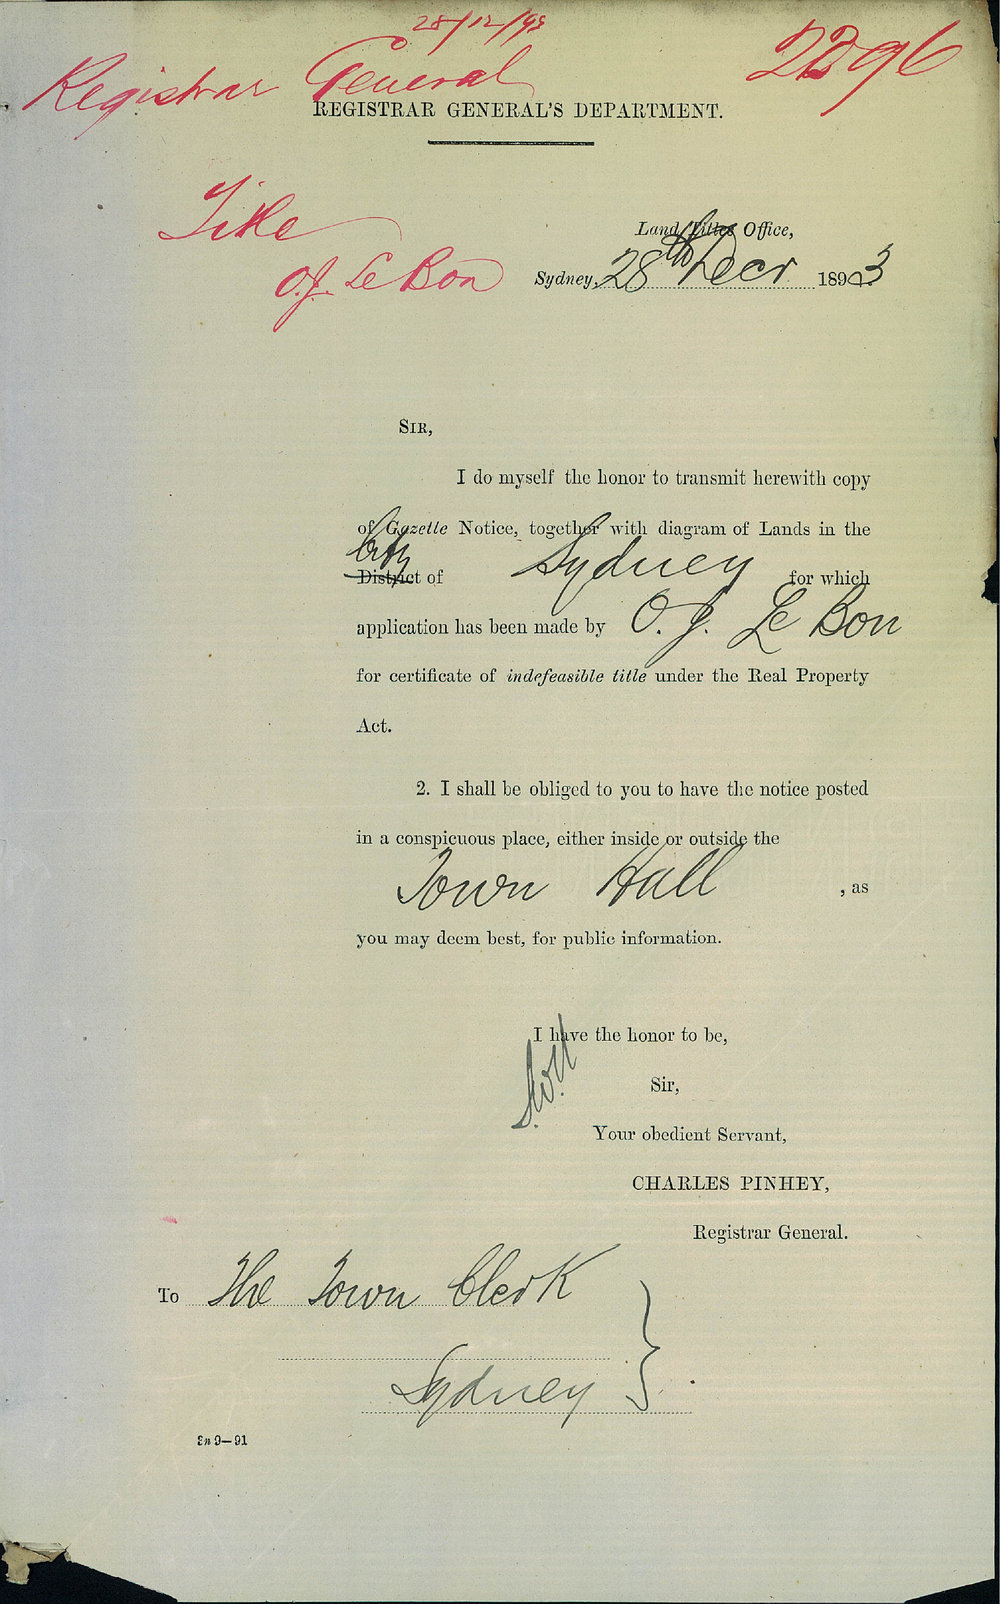 28/12/93
2296
Registrar General
REGISTRAR GENERAL'S DEPARTMENT.
Title
O.J. Le Bon
Land Titles Office,
Sydney, 28th Decr 1893
SIR,
I do myself the honor to transmit herewith copy
of Gazette Notice, together with diagram of Lands in the
City
District of Sydney for which
application has been made by O. J. Le Bon
for certificate of indefeasible title under the Real Property
Act.
2. I shall be obliged to you to have the notice posted
in a conspicuous place, either inside or outside the
Town Hall , as
you may deem best, for public information.
I have the honor to be,
Sir,
Your obedient Servant,
CHARLES PINHEY,
Registrar General.
To The Town Clerk
Sydney
9—91